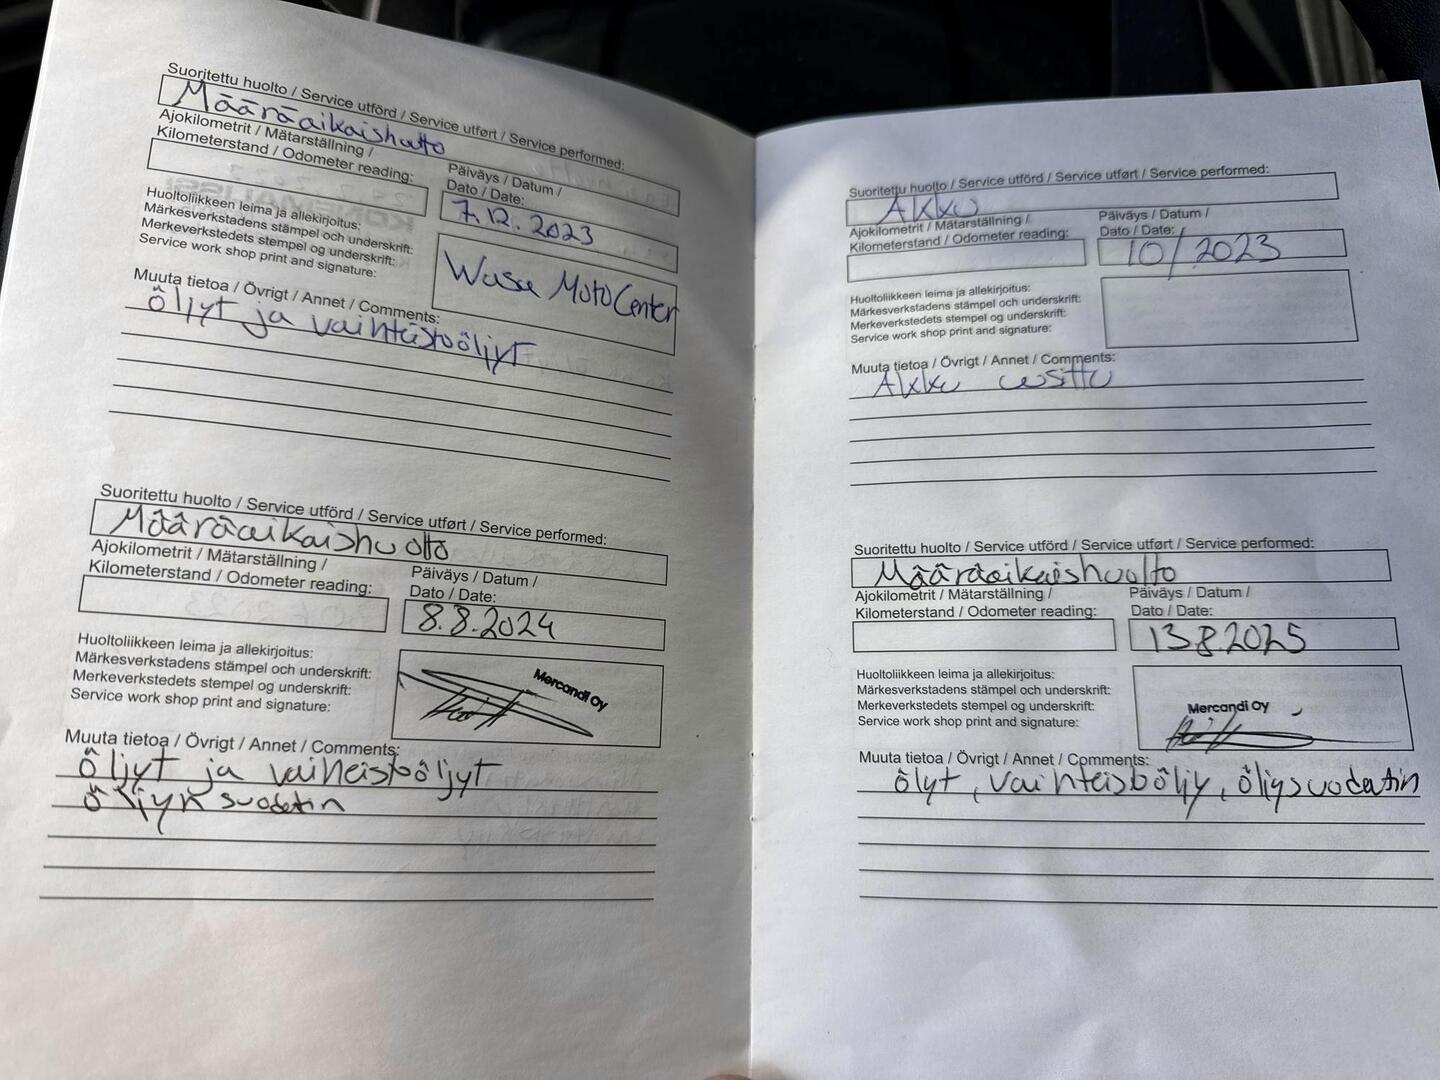 Suoritettu huolto / Service utförd / Service utført / Service performed:
Määräaikaishuolto
Ajokilometrit / Mätarställning /
Kilometerstand / Odometer reading:
Päiväys / Datum /
Dato / Date:
7.12.2023
Huoltoliikkeen leima ja allekirjoitus:
Märkesverkstadens stämpel och underskrift:
Merkeverkstedets stempel og underskrift:
Service work shop print and signature:
Wasa MotoCenter
Muuta tietoa / Övrigt / Annet / Comments:
öljyt ja vaihteistoöljyt
Suoritettu huolto / Service utförd / Service utført / Service performed:
Määräaikaishuolto
Ajokilometrit / Mätarställning /
Kilometerstand / Odometer reading:
Päiväys / Datum /
Dato / Date:
8.8.2024
Huoltoliikkeen leima ja allekirjoitus:
Märkesverkstadens stämpel och underskrift:
Merkeverkstedets stempel og underskrift:
Service work shop print and signature:
Mercandi Oy
Muuta tietoa / Övrigt / Annet / Comments:
öljyt ja vaiheistoöljyt
öljyn suodatin
Suoritettu huolto / Service utförd / Service utført / Service performed:
Akku
Ajokilometrit / Mätarställning /
Kilometerstand / Odometer reading:
Päiväys / Datum /
Dato / Date:
10/2023
Huoltoliikkeen leima ja allekirjoitus:
Märkesverkstadens stämpel och underskrift:
Merkeverkstedets stempel og underskrift:
Service work shop print and signature:
Muuta tietoa / Övrigt / Annet / Comments:
Akku uusittu
Suoritettu huolto / Service utförd / Service utført / Service performed:
Määräaikaishuolto
Ajokilometrit / Mätarställning /
Kilometerstand / Odometer reading:
Päiväys / Datum /
Dato / Date:
13.8.2025
Huoltoliikkeen leima ja allekirjoitus:
Märkesverkstadens stämpel och underskrift:
Merkeverkstedets stempel og underskrift:
Service work shop print and signature:
Mercandi Oy
Muuta tietoa / Övrigt / Annet / Comments:
ölyt, vaihteistoöljy, öljysuodatin